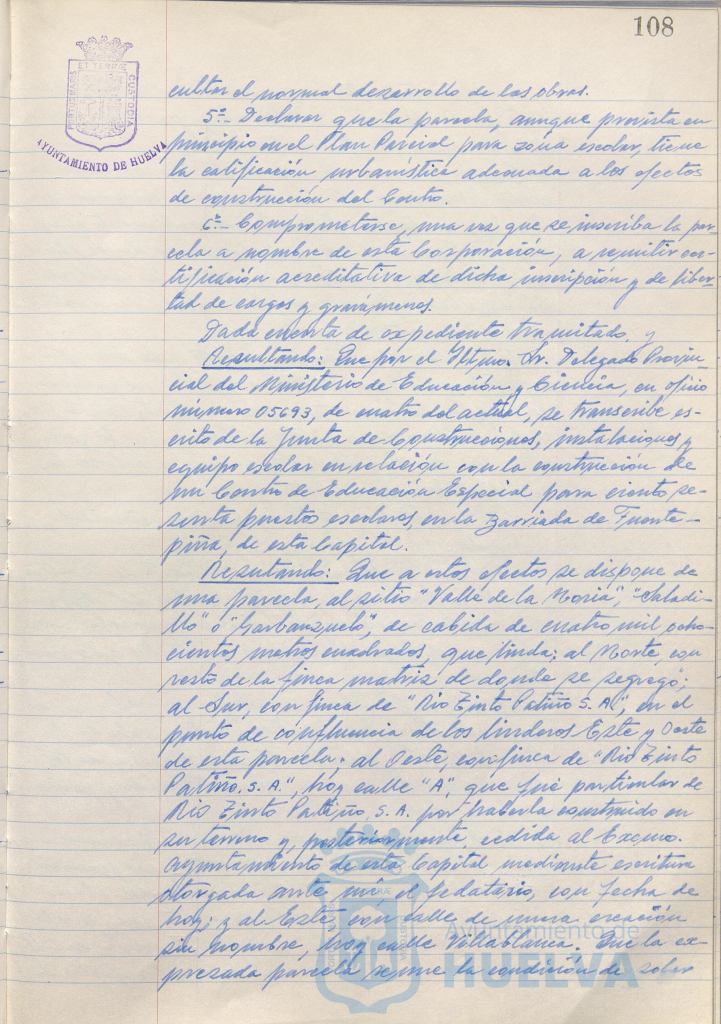 108
PORTUS MARIS ET TERRÆ CUSTODIA
AYUNTAMIENTO DE HUELVA
cultar el normal desarrollo de las obras.
5º.- Declarar que la parcela, aunque prevista en
principio en el Plan Parcial para zona escolar, tiene
la calificación urbanística adecuada a los efectos
de construcción del Centro.
6º.- Comprometerse, una vez que se inscriba la par-
cela a nombre de esta Corporación, a remitir cer-
tificación acreditativa de dicha inscripción y de liber-
tad de cargas y gravámenes.
Dada cuenta de expediente tramitado, y
Resultando: Que por el Iltmo. Sr. Delegado Provin-
cial del Ministerio de Educación y Ciencia, en oficio
número 05693, de cuatro del actual, se transcribe es-
crito de la Junta de Construcciones, instalaciones y
equipo escolar en relación con la construcción de
un Centro de Educación Especial para ciento se-
senta puestos escolares, en la Barriada de Fuente-
piña, de esta Capital.
Resultando: Que a estos efectos se dispone de
una parcela, al sitio "Valle de la Noria", "Saladi-
llo" o "Garbanzuelo", de cabida de cuatro mil ocho-
cientos metros cuadrados, que linda: al Norte, con
resto de la finca matriz de donde se segregó;
al Sur, con finca de "Rio Tinto Patiño S. A.", en el
punto de confluencia de los linderos Este y Oeste
de esta parcela; al Oeste, con finca de "Rio Tinto
Patiño, S. A.", hoy calle "A", que fué particular de
Rio Tinto Patiño, S. A. por haberla construido en
su terreno y, posteriormente, cedida al Excmo.
Ayuntamiento de esta Capital mediante escritura
otorgada ante mí, el fedatario, con fecha de
hoy; y al Este, con calle de nueva creación
sin nombre, hoy calle Villablanca. Que la ex-
presada parcela reune la condición de solar
Ayuntamiento de
HUELVA